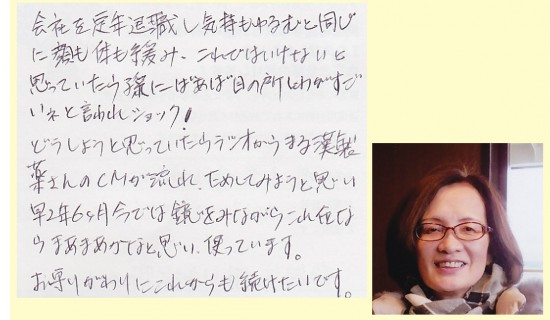 会社を定年退職し気持もゆるむと同じ
に顔も体も緩み、これではいけないと
思っていたら孫にばあば目の所しわがすご
いネと言われショック!
どうしようと思っていたらラジオからうまる漢製
薬さんのCMが流れ、ためしてみようと思い
早2年6ヶ月今では鏡をみながらこれ位な
らまあまあかなと思い、使っています。
お守りがわりにこれからも続けたいです。